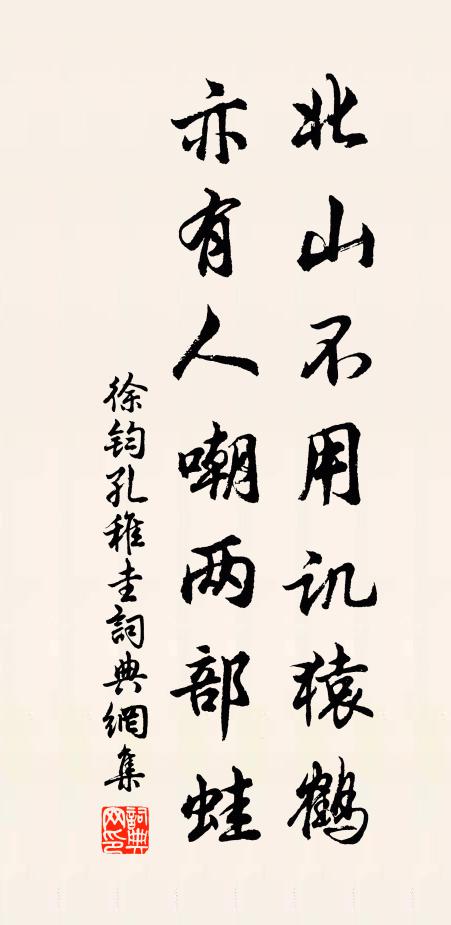 北山不用讥猿鹤
亦有人嘲两部蛙
徐钧孔稚圭詞典網集
詞典网印